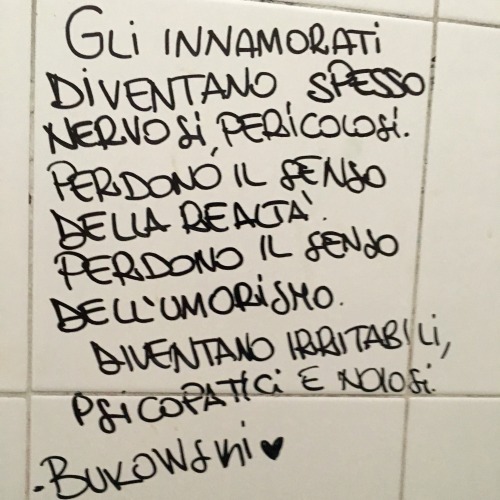 GLI INNAMORATI
DIVENTANO SPESSO
NERVOSI, PERICOLOSI.
PERDONO IL SENSO
DELLA REALTÀ.
PERDONO IL SENSO
DELL'UMORISMO.
DIVENTANO IRRITABILI,
PSICOPATICI E NOIOSI.
-BUKOWSKI ♥